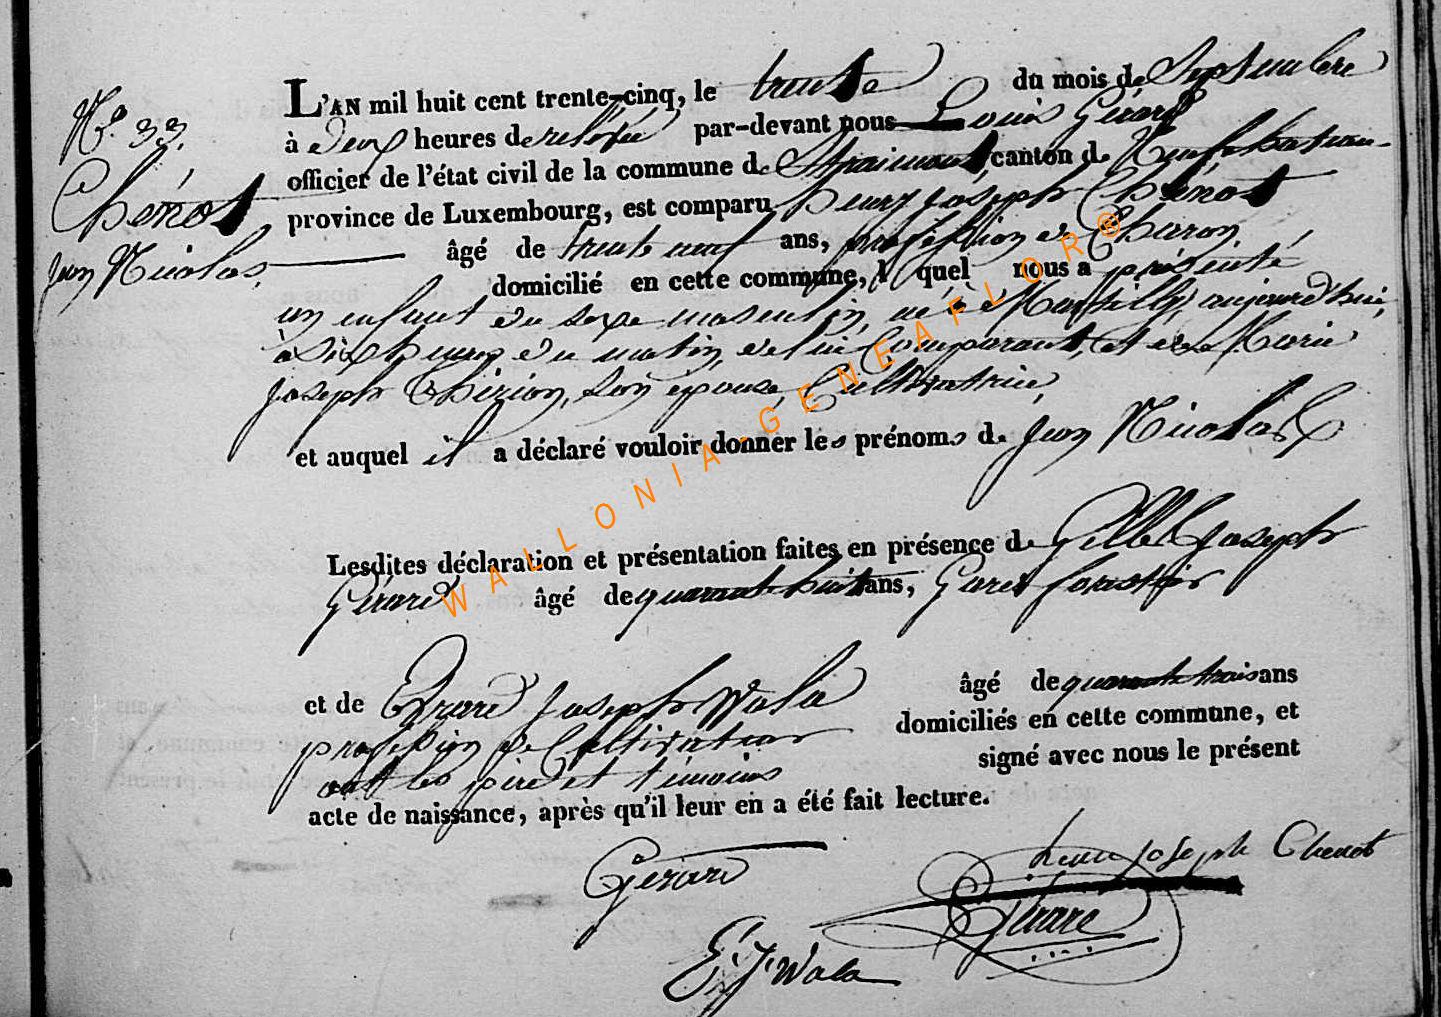 N.° 33.
Chénot,
Jean Nicolas.
L'AN mil huit cent trente-cinq, le trente du mois de Septembre
à deux heures de relevée par-devant nous Louis Gérard
officier de l'état civil de la commune de Straimont, canton de Neufchateau
province de Luxembourg, est comparu henry Joseph Chénot
âgé de trente neuf ans, profession de Charon
domicilié en cette commune, l quel nous a présenté
un enfant du sexe masculin, né à Martilly, aujourd'hui,
à six heures du matin, de lui Comparant, et de Marie
Joseph Thirion, son épouse, Cultivatrice,
et auquel il a déclaré vouloir donner les prénoms de Jean Nicolas
Lesdites déclaration et présentation faites en présence de Gille Joseph
Gérard âgé de quarante huit ans, Garde forestier
et de Erard Joseph Wala âgé de quarante trois ans
profession de Cultivateur domiciliés en cette commune, et
ont les père et témoins signé avec nous le présent
acte de naissance, après qu'il leur en a été fait lecture.
Gérard
henri joseph Chenot
Gérard
E. J. Wala
WALLONIA-GENEAFLOR®